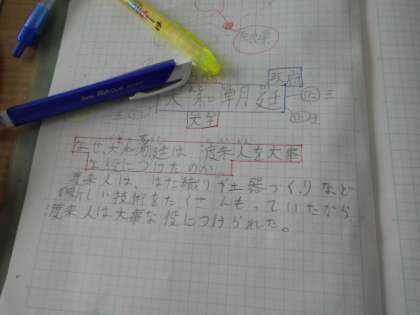 奈良県
政府
大和朝廷
大王
なぜ、大和朝廷は、渡来人を大事
な役につけたのか。
渡来人は、はた織りや土器づくりなど
新しい技術をたくさんもっていたから
渡来人は大事な役につけられた。